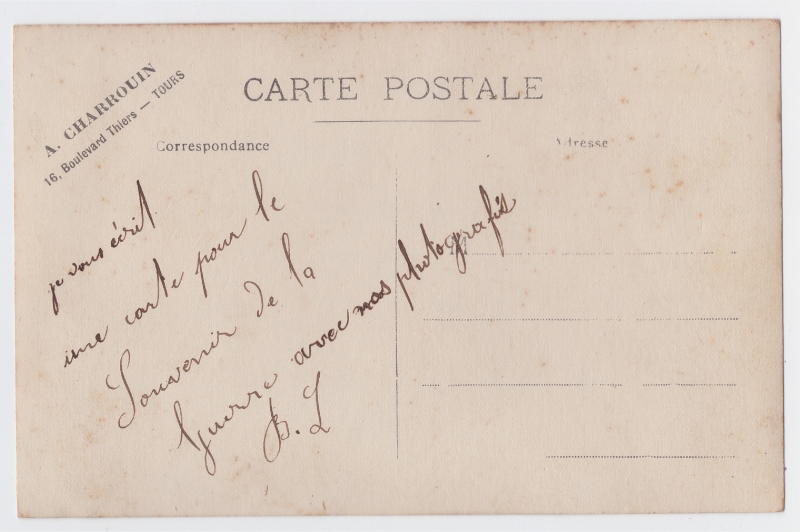 A. CHARROUIN
16, Boulevard Thiers — TOURS
CARTE POSTALE
Correspondance
Adresse
je vous écrit
une carte pour le
Souvenir de la
Guerre avec nos photografis
B. L